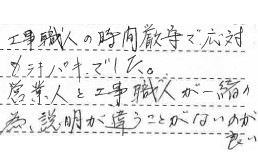 工事職人の時間厳守で応対
テキパキでした。
営業人と工事職人が一緒の
為、説明が違うことがないのが
良い